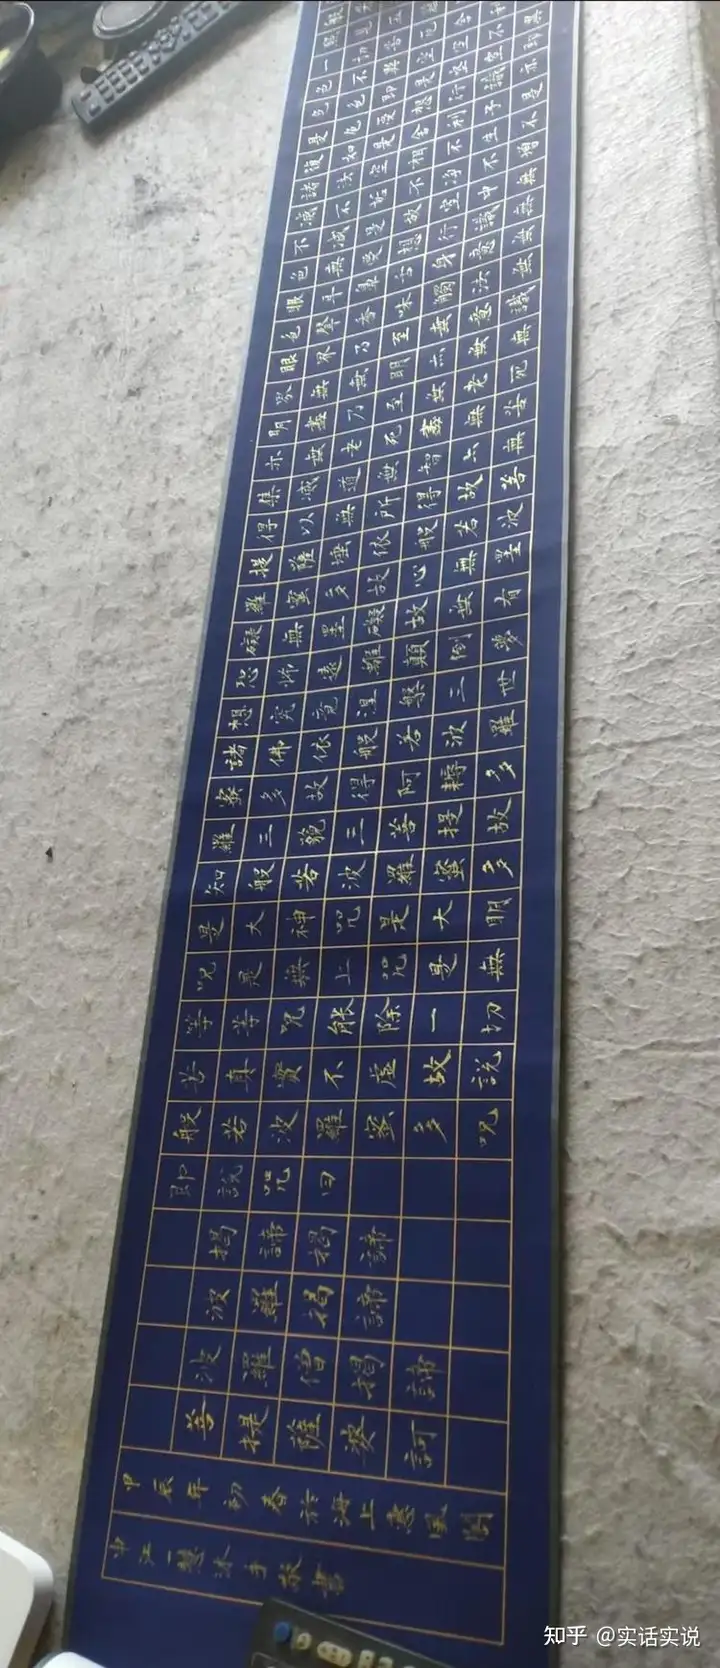 照見五蘊皆空度
一切苦厄舍利子
色不異空空不異
色色即是空空即
是色受想行識亦
復如是舍利子是
諸法空相不生不
滅不垢不淨不增
不減是故空中無
色無受想行識無
眼耳鼻舌身意無
色聲香味觸法無
眼界乃至無意識
界無無明亦無無
明盡乃至無老死
亦無老死盡無苦
集滅道無智亦無
得以無所得故菩
提薩埵依般若波
羅蜜多故心無罣
礙無罣礙故無有
恐怖遠離顛倒夢
想究竟涅槃三世
諸佛依般若波羅
蜜多故得阿耨多
羅三藐三菩提故
知般若波羅蜜多
是大神咒是大明
咒是無上咒是無
等等咒能除一切
苦真實不虛故說
般若波羅蜜多咒
即說咒曰
揭諦揭諦
波羅揭諦
波羅僧揭諦
菩提薩婆訶
甲辰年初春於海上惠風閣
中江一慧沐手敬書
知乎 @实话实说